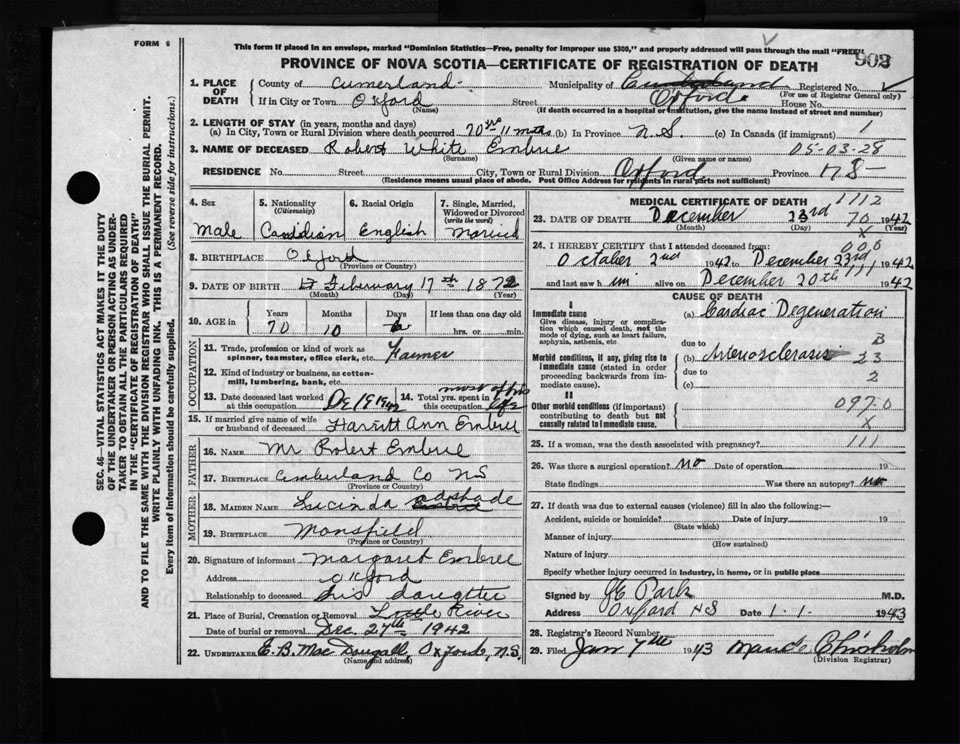 FORM 6
This form if placed in an envelope, marked "Dominion Statistics—Free, penalty for improper use $300," and properly addressed will pass through the mail "FREE"
PROVINCE OF NOVA SCOTIA—CERTIFICATE OF REGISTRATION OF DEATH
903
1. PLACE OF DEATH County of Cumerland Municipality of Cumberland Registered No.
(For use of Registrar General only)
If in City or Town Oxford Street Oxford House No.
(Name) (If death occurred in hospital or institution, give the name instead of street and number)
2. LENGTH OF STAY (in years, months and days)
(a) In City, Town or Rural Division where death occurred 70 yrs 11 mths (b) In Province N.S. (c) In Canada (if immigrant) 1
3. NAME OF DECEASED Robert White Embree 05-03-28
(Surname) (Given name or names)
RESIDENCE No. Street City, Town or Rural Division Oxford Province N S—
(Residence means usual place of abode. Post Office Address for residents in rural parts not sufficient)
4. Sex 5. Nationality (Citizenship) 6. Racial Origin 7. Single, Married, Widowed or Divorced (write the word)
Male Canadian English Married
8. BIRTHPLACE Oxford
(Province or Country)
9. DATE OF BIRTH Feberuary 17th 1872
(Month) (Day) (Year)
10. AGE in Years Months Days If less than one day
70 10 6 hrs. or min.
OCCUPATION
11. Trade, profession or kind of work as spinner, teamster, office clerk, etc. Farmer
12. Kind of industry or business, as cotton-mill, lumbering, bank, etc.
13. Date deceased last worked at this occupation De 19 1942 14. Total yrs. spent in this occupation most of his life
15. If married give name of wife or husband of deceased Harriett Ann Embree
FATHER
16. NAME Mr Robert Embree
17. BIRTHPLACE Cumberland Co NS
(Province or Country)
MOTHER
18. MAIDEN NAME Lucinda adshade
19. BIRTHPLACE Mansfield
(Province or Country)
20. Signature of informant Margaret Embree
Address Oxford
Relationship to deceased his daughter
21. Place of Burial, Cremation or Removal Little River
Date of burial or removal Dec. 27th 1942
22. UNDERTAKER C. B. MacDougall, Oxford, N.S.
(Name and address)
MEDICAL CERTIFICATE OF DEATH 1112
23. DATE OF DEATH December 23rd 1942
70
(Month) (Day) (Year)
x
24. I HEREBY CERTIFY that I attended deceased from: 000
October 2nd 1942 to December 23rd 1942
and last saw h im alive on December 20th 1942
CAUSE OF DEATH
I
Immediate cause
Give disease, injury or complication which caused death, not the mode of dying, such as heart failure, asphyxia, asthenia, etc.
(a) Cardiac Degeneration
due to B
Morbid conditions, if any, giving rise to immediate cause (stated in order proceeding backwards from immediate cause).
(b) Arteriosclerosis 23
due to 2
(c)
II
Other morbid conditions (if important) contributing to death but not causally related to immediate cause.
097-0
x
25. If a woman, was the death associated with pregnancy? 111
26. Was there a surgical operation? no Date of operation 19
State findings Was there an autopsy? no
27. If death was due to external causes (violence) fill in also the following:—
Accident, suicide or homicide? Date of injury 19
(State which)
Manner of injury
(How sustained)
Nature of injury
Specify whether injury occurred in industry, in home, or in public place
Signed by Park M.D.
Address Oxford NS Date 1.1. 1943
28. Registrar's Record Number
29. Filed Jan 7th 1943 Maude Chisholm
(Division Registrar)
SEC. 46—VITAL STATISTICS ACT MAKES IT THE DUTY
OF THE UNDERTAKER OR PERSON ACTING AS UNDER-
TAKER TO OBTAIN ALL THE PARTICULARS REQUIRED
IN THE "CERTIFICATE OF REGISTRATION OF DEATH"
AND TO FILE THE SAME WITH THE DIVISION REGISTRAR WHO SHALL ISSUE THE BURIAL PERMIT.
WRITE PLAINLY WITH UNFADING INK. THIS IS A PERMANENT RECORD.
Every item of information should be carefully supplied. (See reverse side for instructions.)